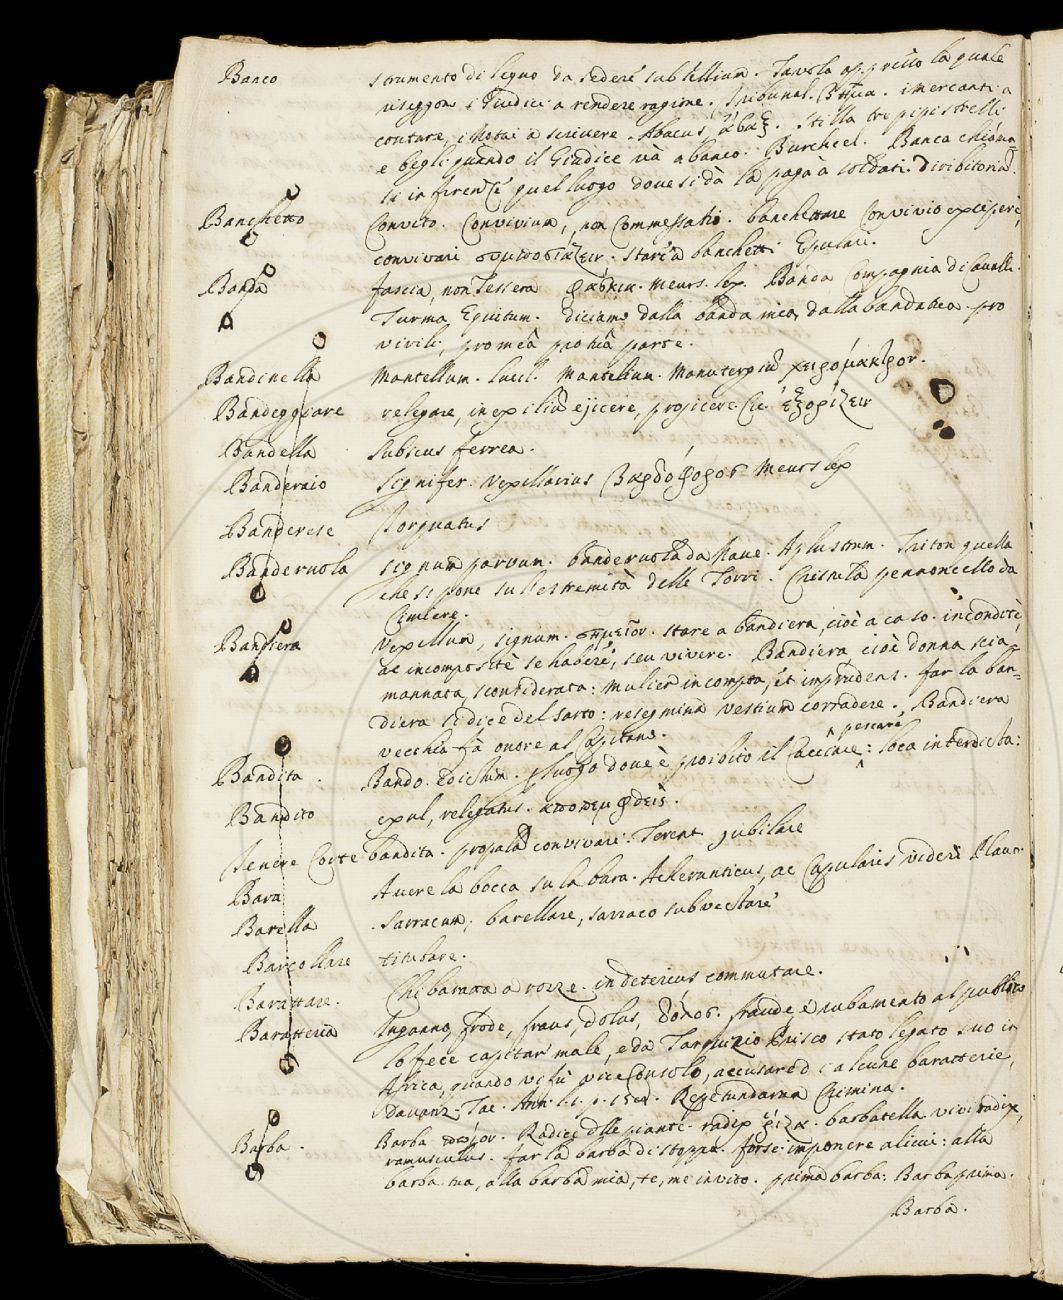 Banco strumento di legno da sedere subsellium. Tavola appresso la quale
riseggon i Giudici a rendere ragione. Tribunal. i mercanti a
contare, i Notai a scrivere. Abacus ἄβαξ. tre pipistrelli
e begli quando il Giudice và a banco. Burchiel. Banca chiama-
si in firenze quel luogo dove si dà la paga à soldati. Diribitoria.
Banchetto Convito. Convivium, non Commessatio. banchettare Convivio excipere,
convivari συμποσιάζειν. stare a banchetti Epulari.
Banda fascia, non Tessera φάσκια. Meurs. lex. Banda Compagnia di Cavalli.
Turma Equitum. diciamo dalla banda mia, dalla banda tua. pro
virili, pro meâ pro tuâ parte.
Bandinella Mantellum. Lucil. Mantelium. Manutergiū χειρόμακτρον.
Bandeggiare relegare, in exiliū ejicere, projicere. Cic. ἐξορίζειν
Bandella Subscus ferrea.
Banderaio signifer. Vexillarius Βανδόφορος Meurs lex
Banderese Torquatus
Banderuola signum parvum. banderuola da Nave. Aplustrum. Triton quella
che si pone su l'estremità delle Torri. Cristula pennoncello da
Cimiere.
Bandiera Vexillum, signum. σημεῖον. stare a bandiera, cioè a caso. inconditè,
ac incompositè se habere, seu vivere. Bandiera cioè donna scia-
mannata, sconsiderata: mulier incompta, et imprudens. far la ban-
diera si dice del sarto: resegmina vestium corradere. Bandiera
vecchia fà onore al Capitano.
pescare
Bandita. Bando. Edictum. luogo dove è proibito il Cacciare: loca interdicta:
Bandito exul, relegatus. αποπεμφθείς.
Tenere Corte bandita. propalā convivari. Terent jubilare
Bara Avere la bocca su la bara. Acherunticus, ac Capularis videri Plaut.
Barella Sarracum; barellare, sarraco subvectare
Barcollare titubare.
Barattare. Chi baratta a rozze. in deterius commutare.
Baratteria Inganno, frode, fraus, dolus, δόλος. fraude, è rubamento al publico
lo fece capitar male, e da Tarquizio Prisco stato legato suo in
Africa, quando vi fù viceConsolo, accusaro d'alcune baratterie,
Davanz. Tac. Ann. Repetundarum Crimina.
Barba. Barba πώγων. Radici dlle piante. radix ῥίζα. barbatella viviradix,
ramusculus. far la barba di stoppa. forse imponere alicui: alla
barba tua, alla barba mia, te, me invito. prima barba: Barba prima.
Barba.